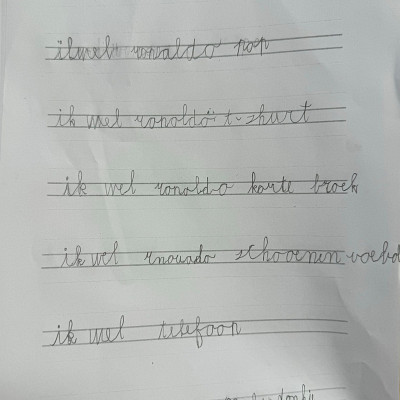 ilmel ronaldo pop
ik wel ronoldo t-shurt
ik wel ronoldo korte broek
ik wel rnouado schoenen voebd
ik wel telefoon